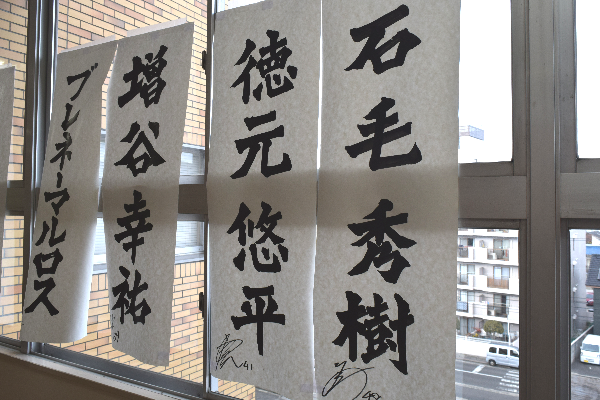 石毛秀樹
徳元悠平
41
増谷幸祐
ブレネーマルロス